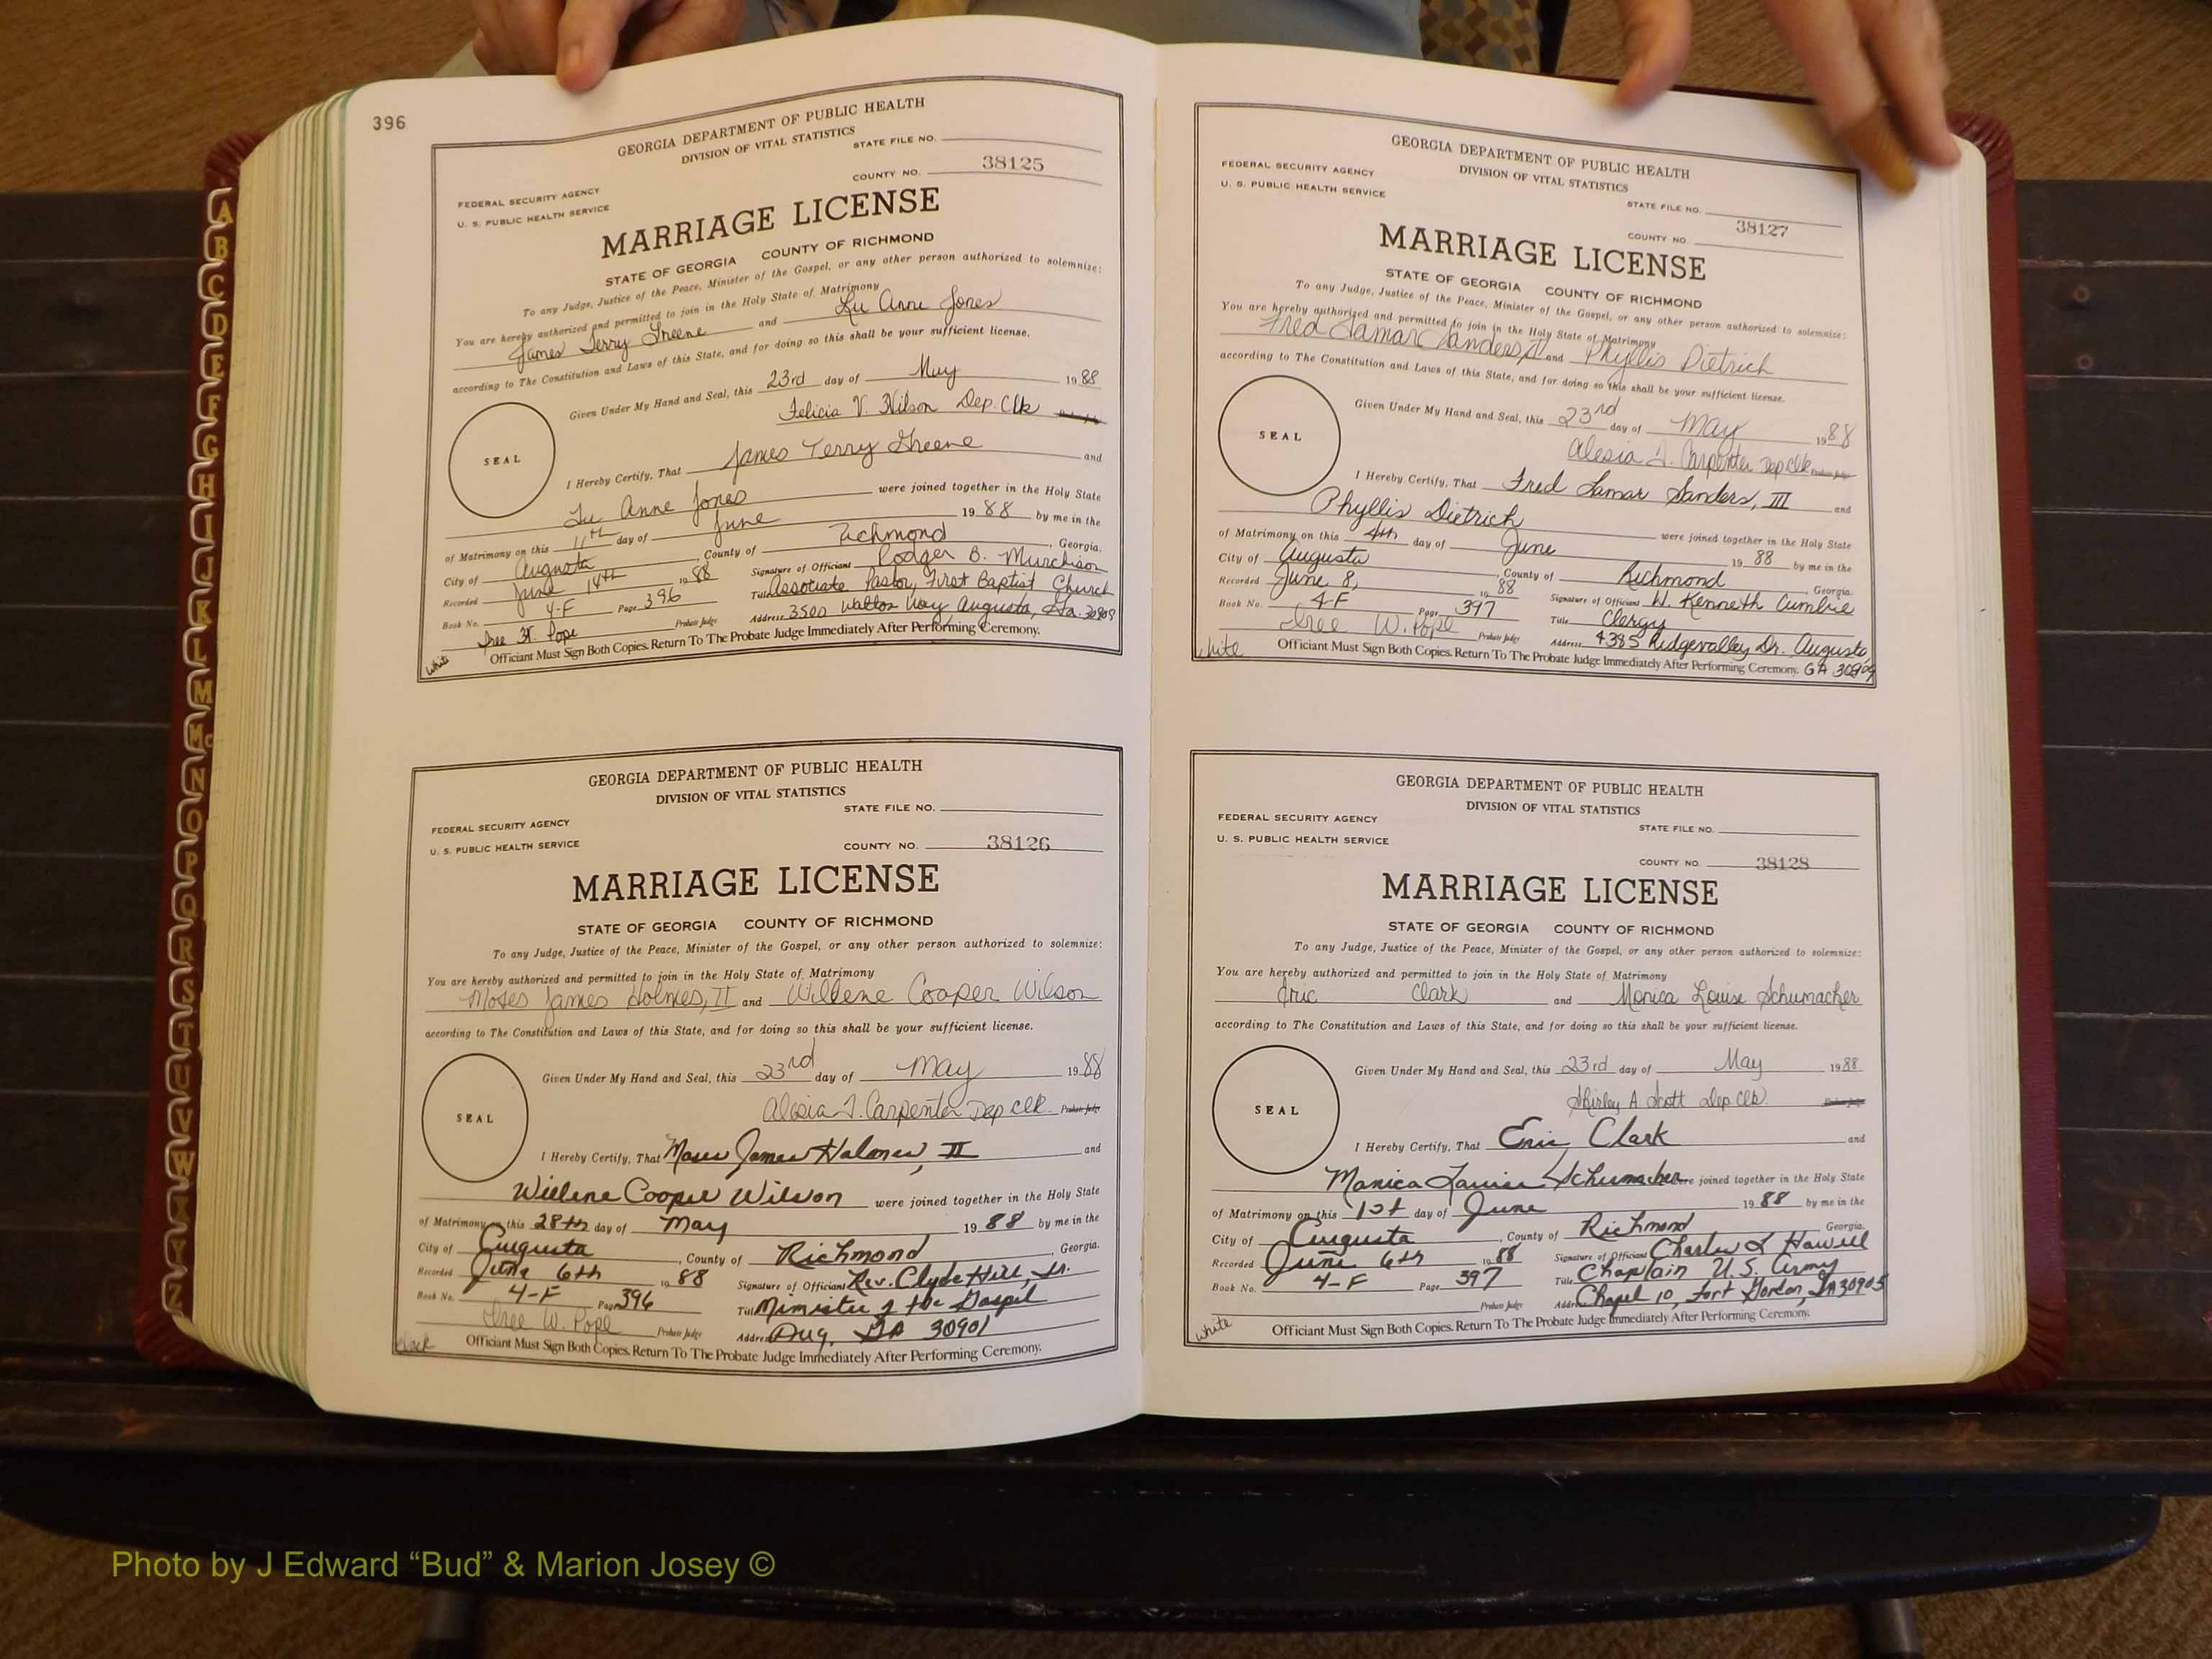 396
GEORGIA DEPARTMENT OF PUBLIC HEALTH
DIVISION OF VITAL STATISTICS
STATE FILE NO.
FEDERAL SECURITY AGENCY
U. S. PUBLIC HEALTH SERVICE
COUNTY NO. 38125
MARRIAGE LICENSE
STATE OF GEORGIA COUNTY OF RICHMOND
To any Judge, Justice of the Peace, Minister of the Gospel, or any other person authorized to solemnize:
You are hereby authorized and permitted to join in the Holy State of Matrimony
James Terry Greene and Lu Anne Jones
according to The Constitution and Laws of this State, and for doing so this shall be your sufficient license.
Given Under My Hand and Seal, this 23rd day of May 1988
Felicia V. Wilson Dep. Clk
SEAL
I Hereby Certify, That James Terry Greene and
Lu Anne Jones were joined together in the Holy State
of Matrimony on this 11th day of June 1988 by me in the
City of Augusta, County of Richmond, Georgia.
Recorded June 14th 1988 Signature of Officiant Rodger B. Murchison
Book No. 4-F Page 396 Title Associate Pastor, First Baptist Church
Probate Judge Address 3500 Walton Way Augusta, Ga. 30909
W. Pope
Officiant Must Sign Both Copies. Return To The Probate Judge Immediately After Performing Ceremony.
white
GEORGIA DEPARTMENT OF PUBLIC HEALTH
DIVISION OF VITAL STATISTICS
STATE FILE NO.
FEDERAL SECURITY AGENCY
U. S. PUBLIC HEALTH SERVICE
COUNTY NO. 38126
MARRIAGE LICENSE
STATE OF GEORGIA COUNTY OF RICHMOND
To any Judge, Justice of the Peace, Minister of the Gospel, or any other person authorized to solemnize:
You are hereby authorized and permitted to join in the Holy State of Matrimony
Moses James Holmes, II and Willene Cooper Wilson
according to The Constitution and Laws of this State, and for doing so this shall be your sufficient license.
Given Under My Hand and Seal, this 23rd day of May 1988
Alesia J. Carpenter Dep Clk. Probate Judge
SEAL
I Hereby Certify, That Moses James Holmes, II and
Willene Cooper Wilson were joined together in the Holy State
of Matrimony on this 28th day of May 1988 by me in the
City of Augusta, County of Richmond, Georgia.
Recorded June 6th 1988 Signature of Officiant Rev. Clyde Hill, Sr.
Book No. 4-F Page 396 Title Minister of the Gospel
W. Pope Probate Judge Address Aug, GA 30901
Officiant Must Sign Both Copies. Return To The Probate Judge Immediately After Performing Ceremony.
black
GEORGIA DEPARTMENT OF PUBLIC HEALTH
DIVISION OF VITAL STATISTICS
FEDERAL SECURITY AGENCY
U. S. PUBLIC HEALTH SERVICE
STATE FILE NO.
COUNTY NO. 38127
MARRIAGE LICENSE
STATE OF GEORGIA COUNTY OF RICHMOND
To any Judge, Justice of the Peace, Minister of the Gospel, or any other person authorized to solemnize:
You are hereby authorized and permitted to join in the Holy State of Matrimony
Fred Lamar Sanders, III and Phyllis Dietrich
according to The Constitution and Laws of this State, and for doing so this shall be your sufficient license.
Given Under My Hand and Seal, this 23rd day of May 1988
Alesia J. Carpenter Dep Clk Probate Judge
SEAL
I Hereby Certify, That Fred Lamar Sanders, III and
Phyllis Dietrich were joined together in the Holy State
of Matrimony on this 4th day of June 1988 by me in the
City of Augusta, County of Richmond, Georgia
Recorded June 8, 1988 Signature of Officiant W. Kenneth Cumbie
Book No. 4-F Page 397 Title Clergy
W. Pope Probate Judge Address 4385 Ridgevalley Dr. Augusta
GA 30909
Officiant Must Sign Both Copies. Return To The Probate Judge Immediately After Performing Ceremony.
white
GEORGIA DEPARTMENT OF PUBLIC HEALTH
DIVISION OF VITAL STATISTICS
FEDERAL SECURITY AGENCY
U. S. PUBLIC HEALTH SERVICE
STATE FILE NO.
COUNTY NO. 38128
MARRIAGE LICENSE
STATE OF GEORGIA COUNTY OF RICHMOND
To any Judge, Justice of the Peace, Minister of the Gospel, or any other person authorized to solemnize:
You are hereby authorized and permitted to join in the Holy State of Matrimony
Eric Clark and Monica Louise Schumacher
according to The Constitution and Laws of this State, and for doing so this shall be your sufficient license.
Given Under My Hand and Seal, this 23rd day of May 1988
Shirley A. Scott Dep Clk.
SEAL
I Hereby Certify, That Eric Clark and
Monica Louise Schumacher were joined together in the Holy State
of Matrimony on this 1st day of June 1988 by me in the
City of Augusta, County of Richmond Georgia.
Recorded June 6th 1988 Signature of Officiant Charles L
Book No. 4-F Page 397 Title Chaplain U.S. Army
Probate Judge Address Chapel 10, Fort Gordon, GA 30905
Officiant Must Sign Both Copies. Return To The Probate Judge Immediately After Performing Ceremony.
white
A
B
C
D
E
F
G
H
I
J
K
L
M
Mc
N
O
P
Q
R
S
T
U
V
W
X
Y
Z
Photo by J Edward “Bud” & Marion Josey ©